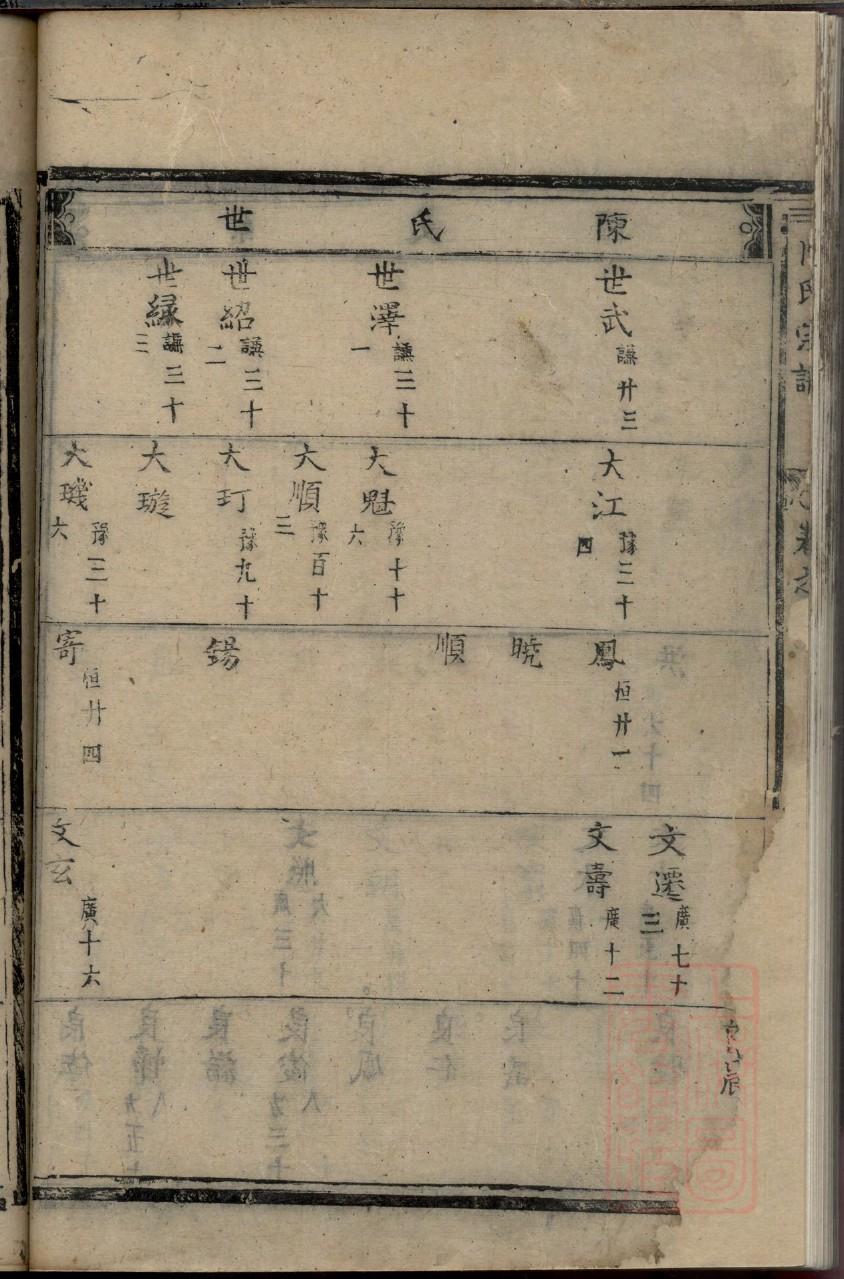 陳氏世
世武 謙廿三
世澤 謙三十一
世紹 謙三十二
世緣 謙三十三
大江 豫三十四
大魁 豫十十六
大順 豫百十三
大玎 豫九十
大璇
大璣 豫三十六
鳳 恒廿一
曉
順
錫
寄 恒廿四
文遷 廣七十三
文壽 廣十二
文玄 廣十六
氏宗譜